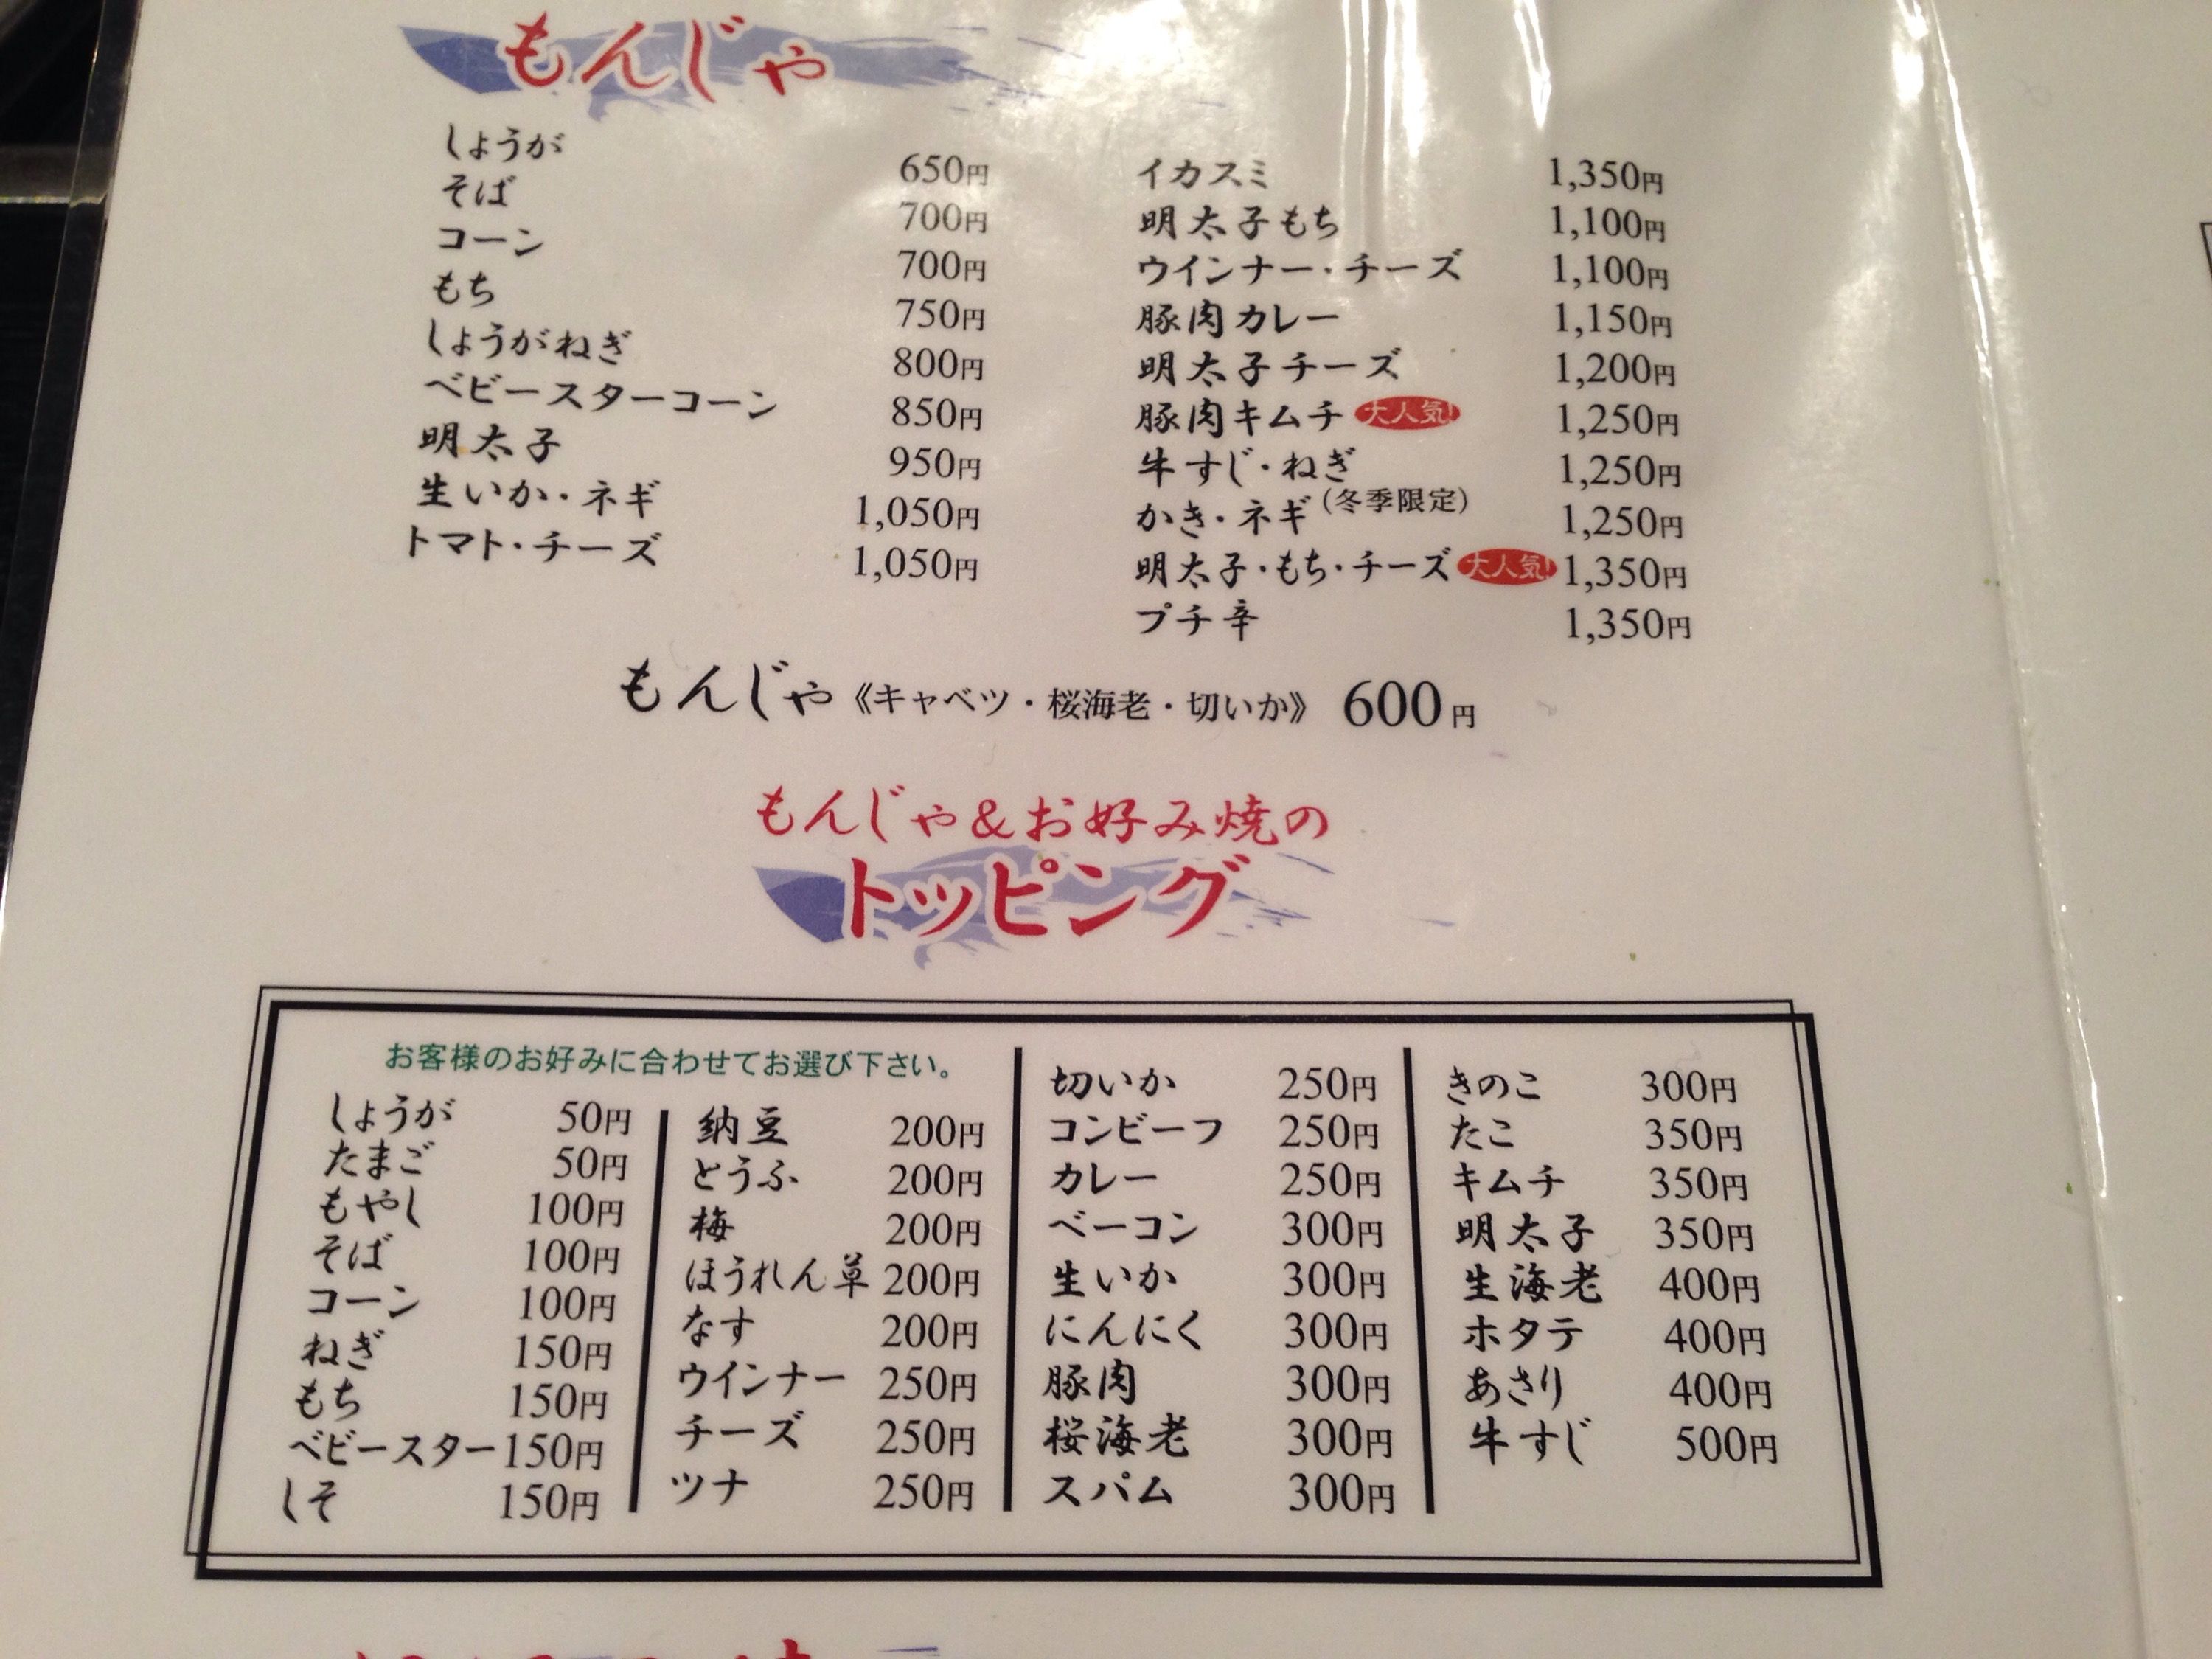 もんじゃ
しょうが 650円
そば 700円
コーン 700円
もち 750円
しょうがねぎ 800円
ベビースターコーン 850円
明太子 950円
生いか・ネギ 1,050円
トマト・チーズ 1,050円
イカスミ 1,350円
明太子もち 1,100円
ウインナー・チーズ 1,100円
豚肉カレー 1,150円
明太子チーズ 1,200円
豚肉キムチ 大人気! 1,250円
牛すじ・ねぎ 1,250円
かき・ネギ(冬季限定) 1,250円
明太子・もち・チーズ 大人気! 1,350円
プチ辛 1,350円
もんじゃ《キャベツ・桜海老・切いか》 600円
もんじゃ&お好み焼の
トッピング
お客様のお好みに合わせてお選び下さい。
しょうが 50円
たまご 50円
もやし 100円
そば 100円
コーン 100円
ねぎ 150円
もち 150円
ベビースター 150円
しそ 150円
納豆 200円
とうふ 200円
梅 200円
ほうれん草 200円
なす 200円
ウインナー 250円
チーズ 250円
ツナ 250円
切いか 250円
コンビーフ 250円
カレー 250円
ベーコン 300円
生いか 300円
にんにく 300円
豚肉 300円
桜海老 300円
スパム 300円
きのこ 300円
たこ 350円
キムチ 350円
明太子 350円
生海老 400円
ホタテ 400円
あさり 400円
牛すじ 500円